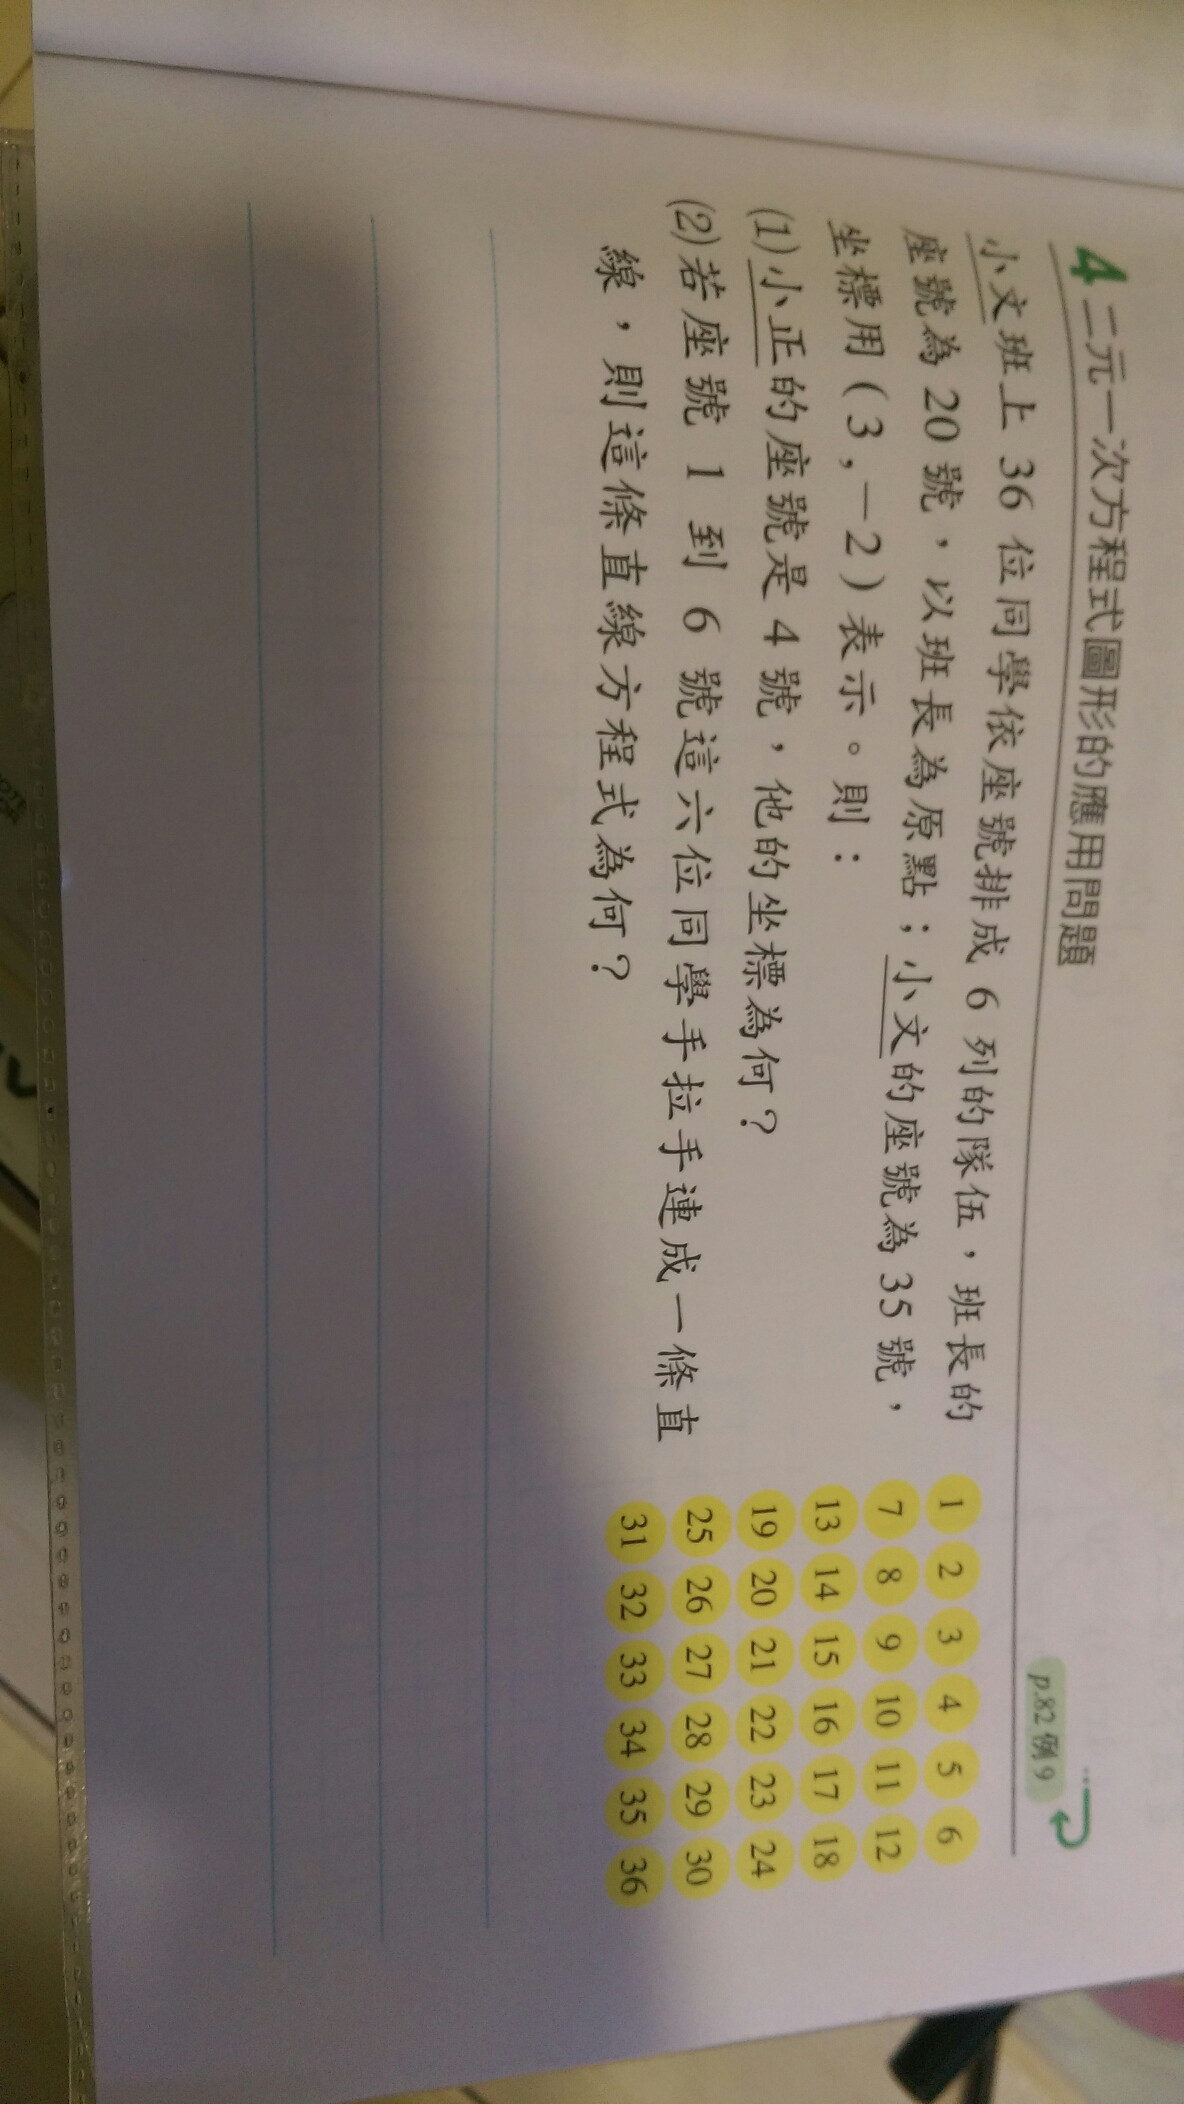 4 二元一次方程式圖形的應用問題
p.82 例 9
小文班上 36 位同學依座號排成 6 列的隊伍，班長的
座號為 20 號，以班長為原點；小文的座號為 35 號，
坐標用（3，－2）表示。則：
(1)小正的座號是 4 號，他的坐標為何？
(2)若座號 1 到 6 號這六位同學手拉手連成一條直
線，則這條直線方程式為何？
1 2 3 4 5 6
7 8 9 10 11 12
13 14 15 16 17 18
19 20 21 22 23 24
25 26 27 28 29 30
31 32 33 34 35 36